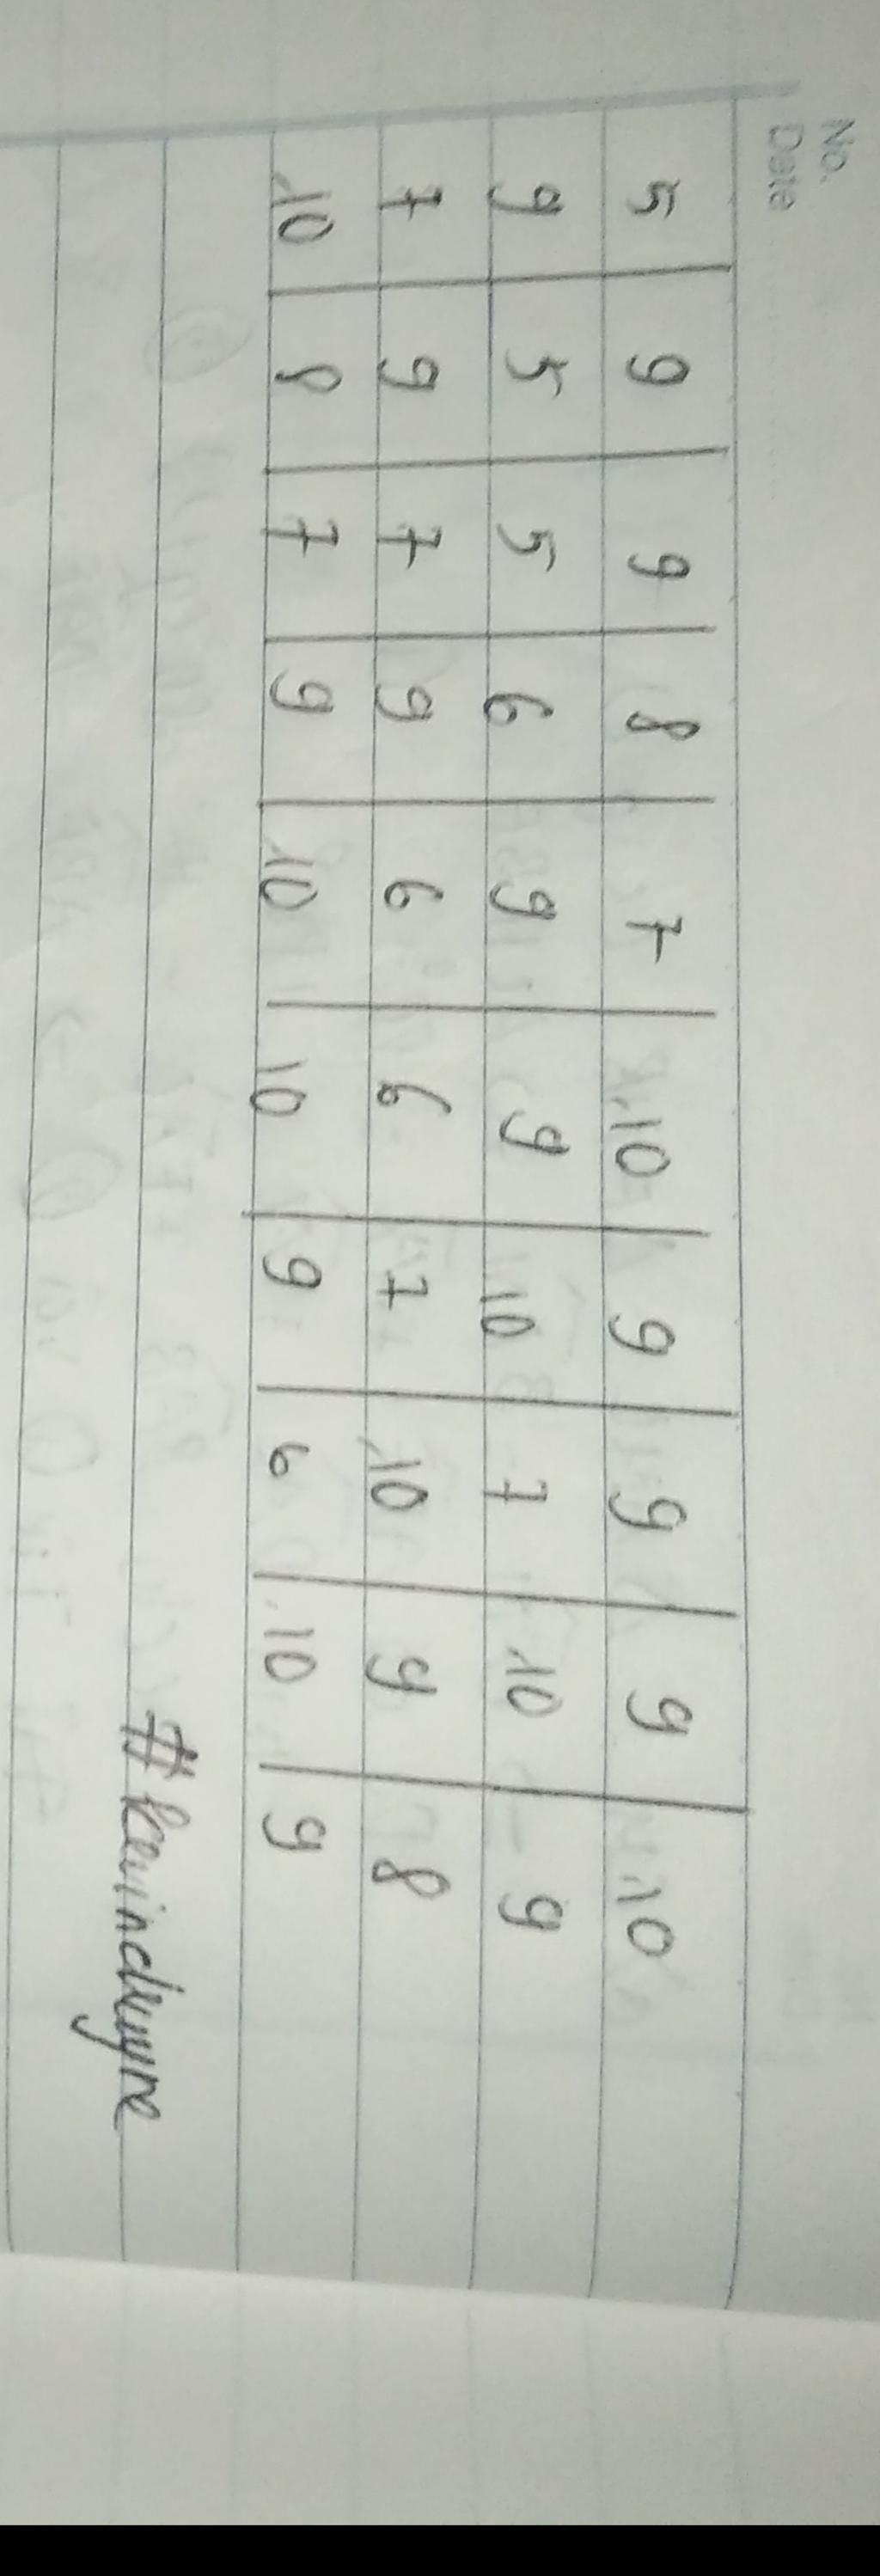 No.
Date
5 9 9 8 7 10 9 9 9 10
9 5 5 6 9 9 10 7 10 9
7 9 7 9 6 6 7 10 9 8
10 8 7 9 10 10 9 6 10 9